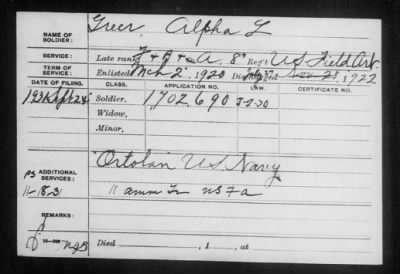 Greer, Alpha L
NAME OF SOLDIER:
SERVICE: Late rank, F & A 8" Reg't US Field Art
TERM OF SERVICE: Enlisted Mch 2", 1920 Discharged 1922
DATE OF FILING. CLASS. APPLICATION NO. LAW. CERTIFICATE NO.
Sept 24 Soldier, 1702,690
Widow,
Minor,
ADDITIONAL SERVICES: "Ortolan" US Navy
11-18-31 11 amm Tr US F a
REMARKS:
Died , 1 , at